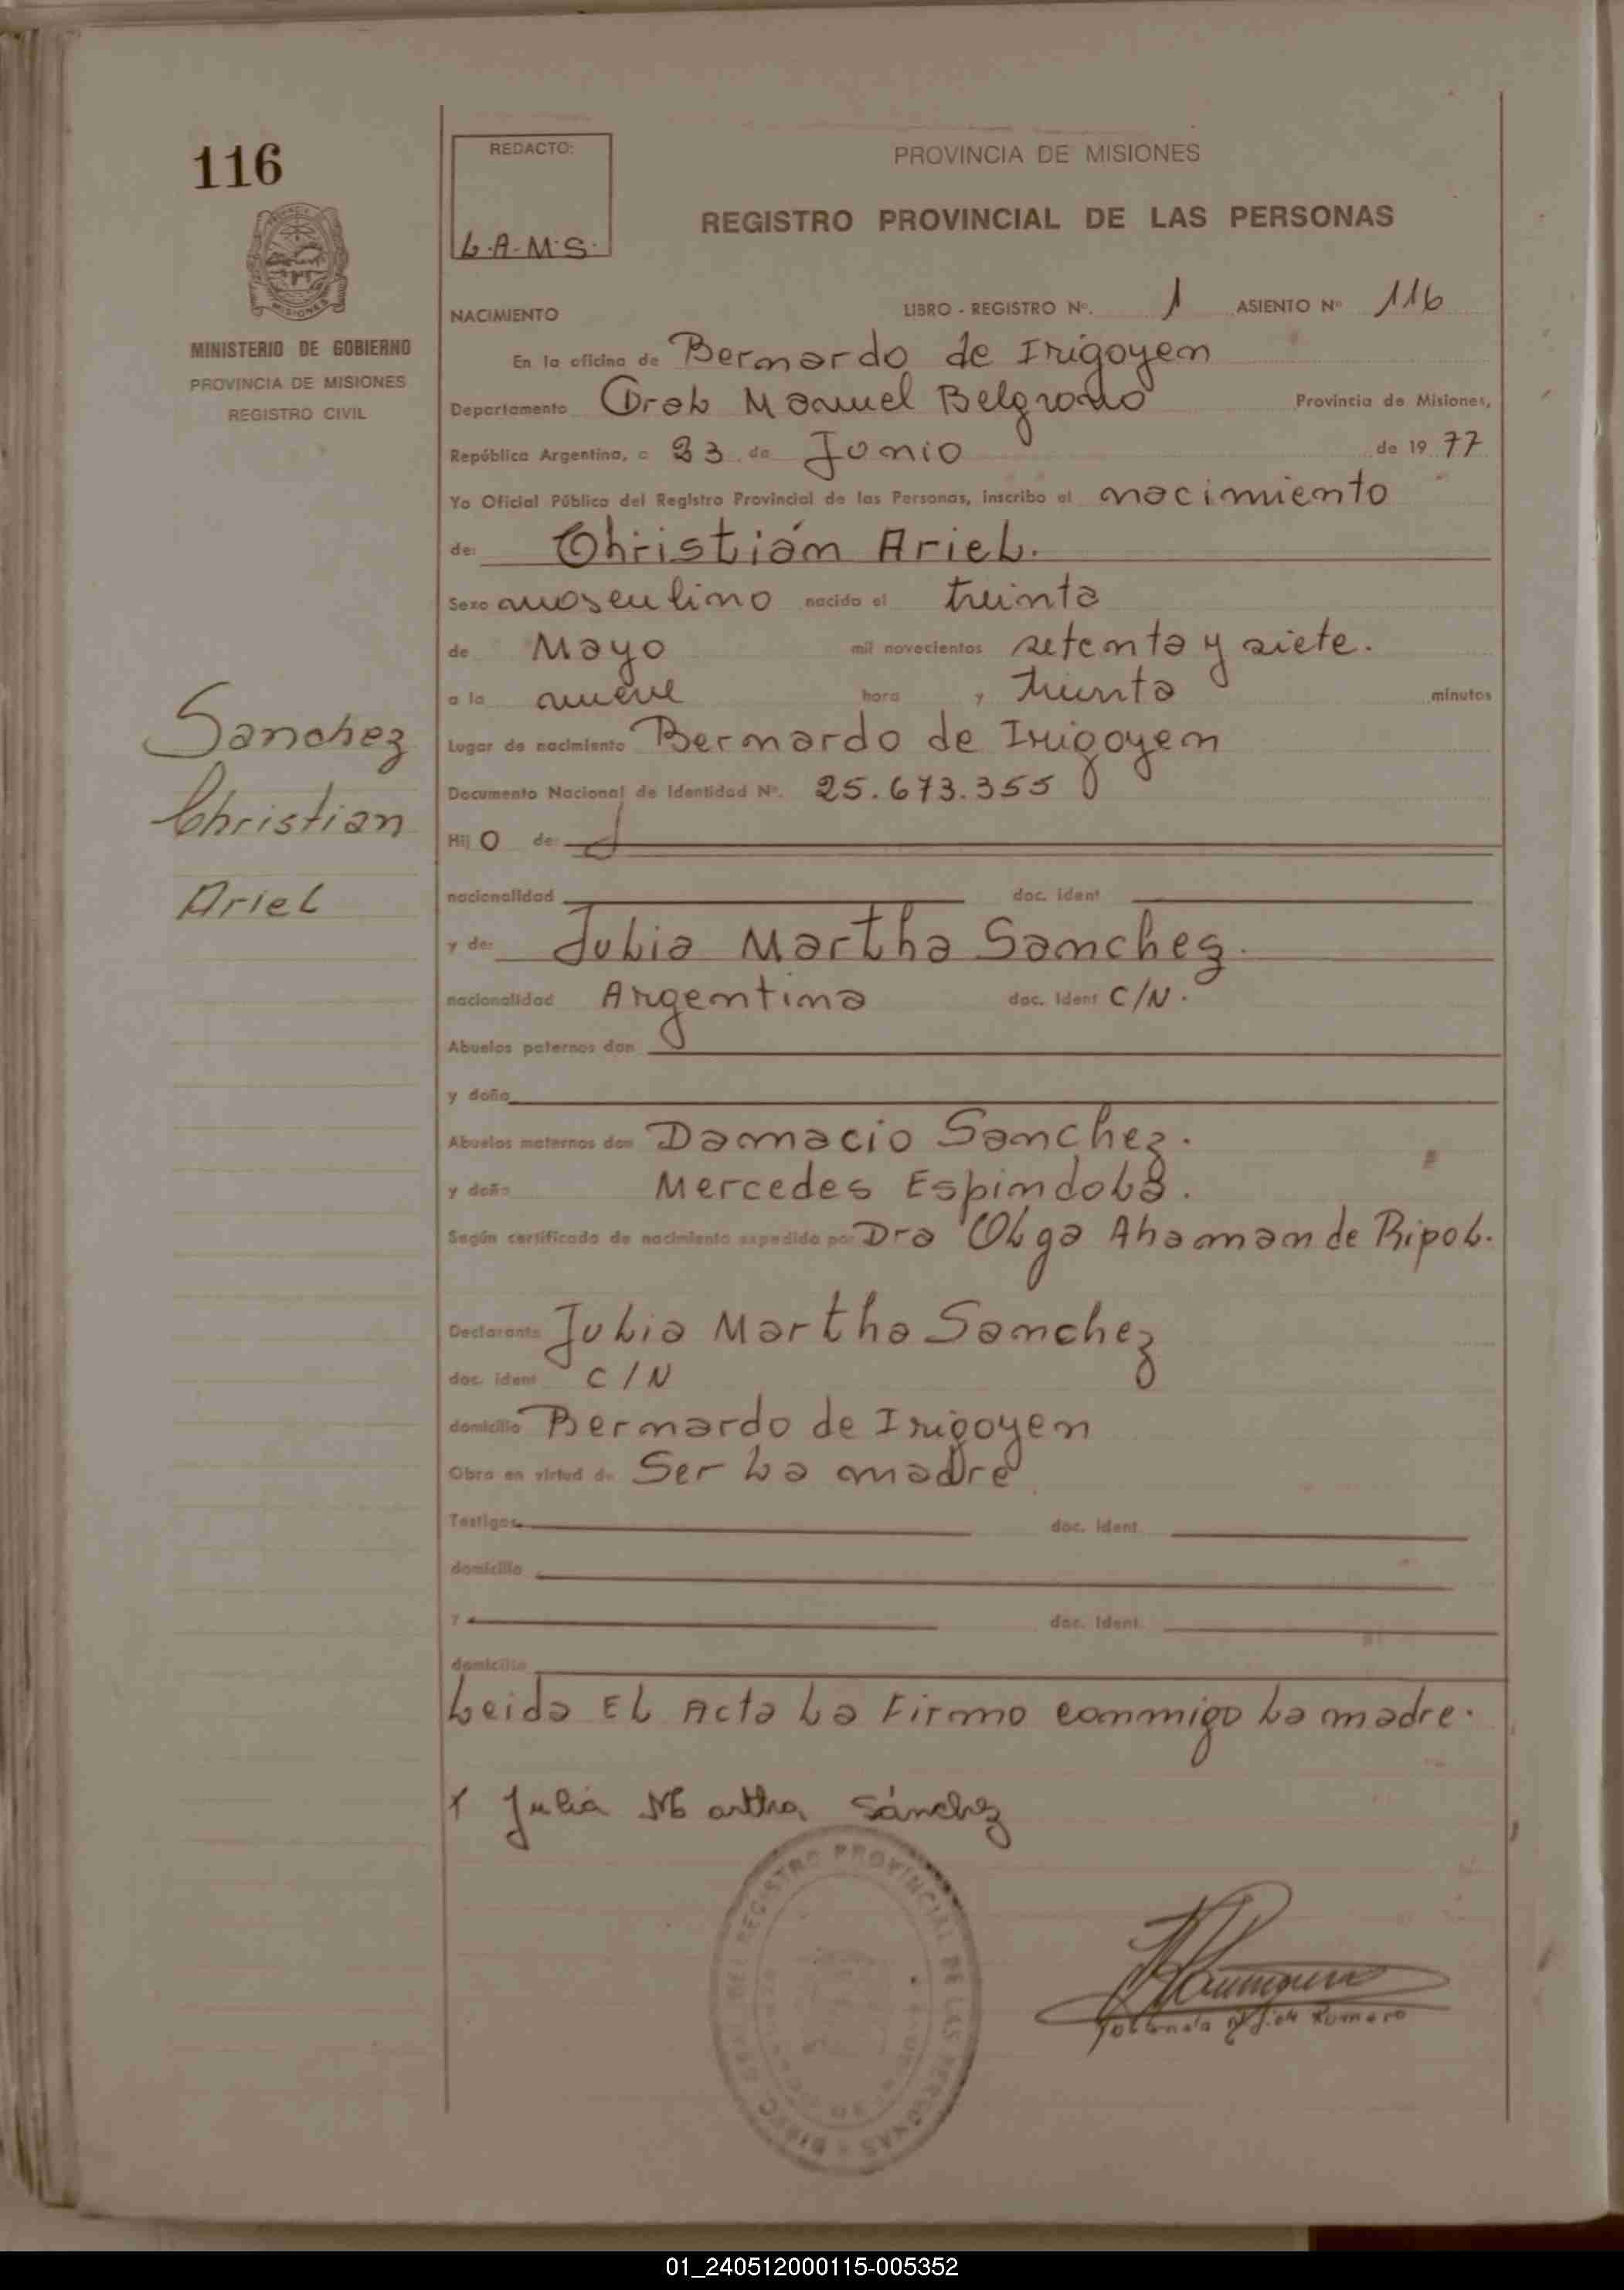 116
REDACTO:
L.A.M.S.
PROVINCIA DE MISIONES
REGISTRO PROVINCIAL DE LAS PERSONAS
MINISTERIO DE GOBIERNO
PROVINCIA DE MISIONES
REGISTRO CIVIL
Sanchez
Christian
Ariel
NACIMIENTO LIBRO - REGISTRO Nº. 1 ASIENTO Nº 116
En la oficina de Bernardo de Irigoyen
Departamento Gral Manuel Belgrano Provincia de Misiones,
República Argentina, a 23 de Junio de 19 77
Yo Oficial Público del Registro Provincial de las Personas, inscribo el nacimiento
de: Christián Ariel.
Sexo masculino nacido el treinta
de Mayo mil novecientos setenta y siete.
a la nueve hora y treinta minutos
Lugar de nacimiento Bernardo de Irigoyen
Documento Nacional de Identidad Nº. 25.673.355
Hij o de:
nacionalidad doc. ident
y de: Julia Martha Sanchez.
nacionalidad Argentina doc. ident C/N.
Abuelos paternos don
y doña
Abuelos maternos don Damacio Sanchez.
y doña Mercedes Espindola.
Según certificado de nacimiento expedido por Dra Olga Ahaman de Ripol.
Declarante Julia Martha Sanchez
doc. ident C/N
domicilio Bernardo de Irigoyen
Obra en virtud de Ser la madre
Testigos doc. ident.
domicilio
y doc. ident.
domicilio
Leida El Acta La Firmo conmigo la madre.
x Julia Martha Sánchez
REGISTRO PROVINCIAL DE LAS PERSONAS
Romero
01_240512000115-005352